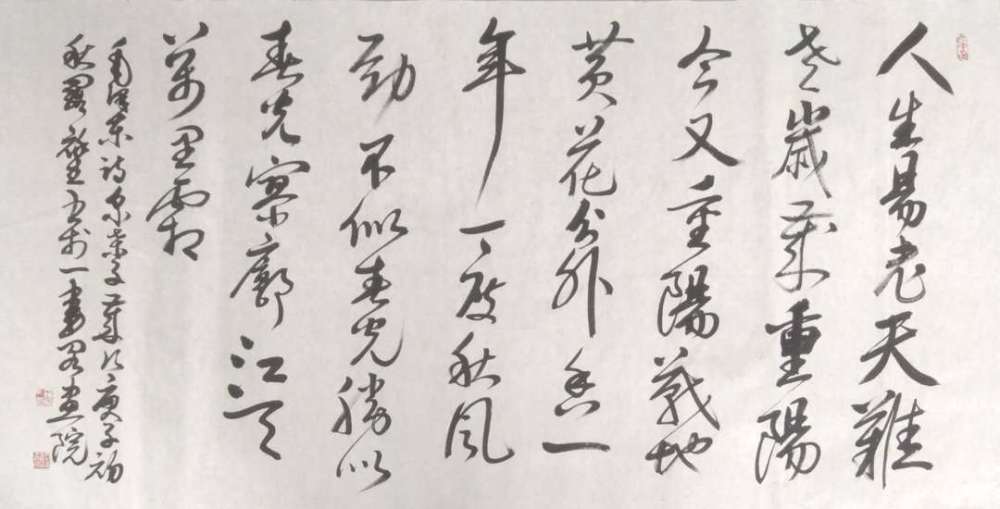 人生易老天難
老歲歲重陽
今又重陽戰地
黃花分外香一
年一度秋風
勁不似春光勝似
春光寥廓江天
萬里霜
毛澤東詩采桑子歲次庚子初
秋 一書 畫院